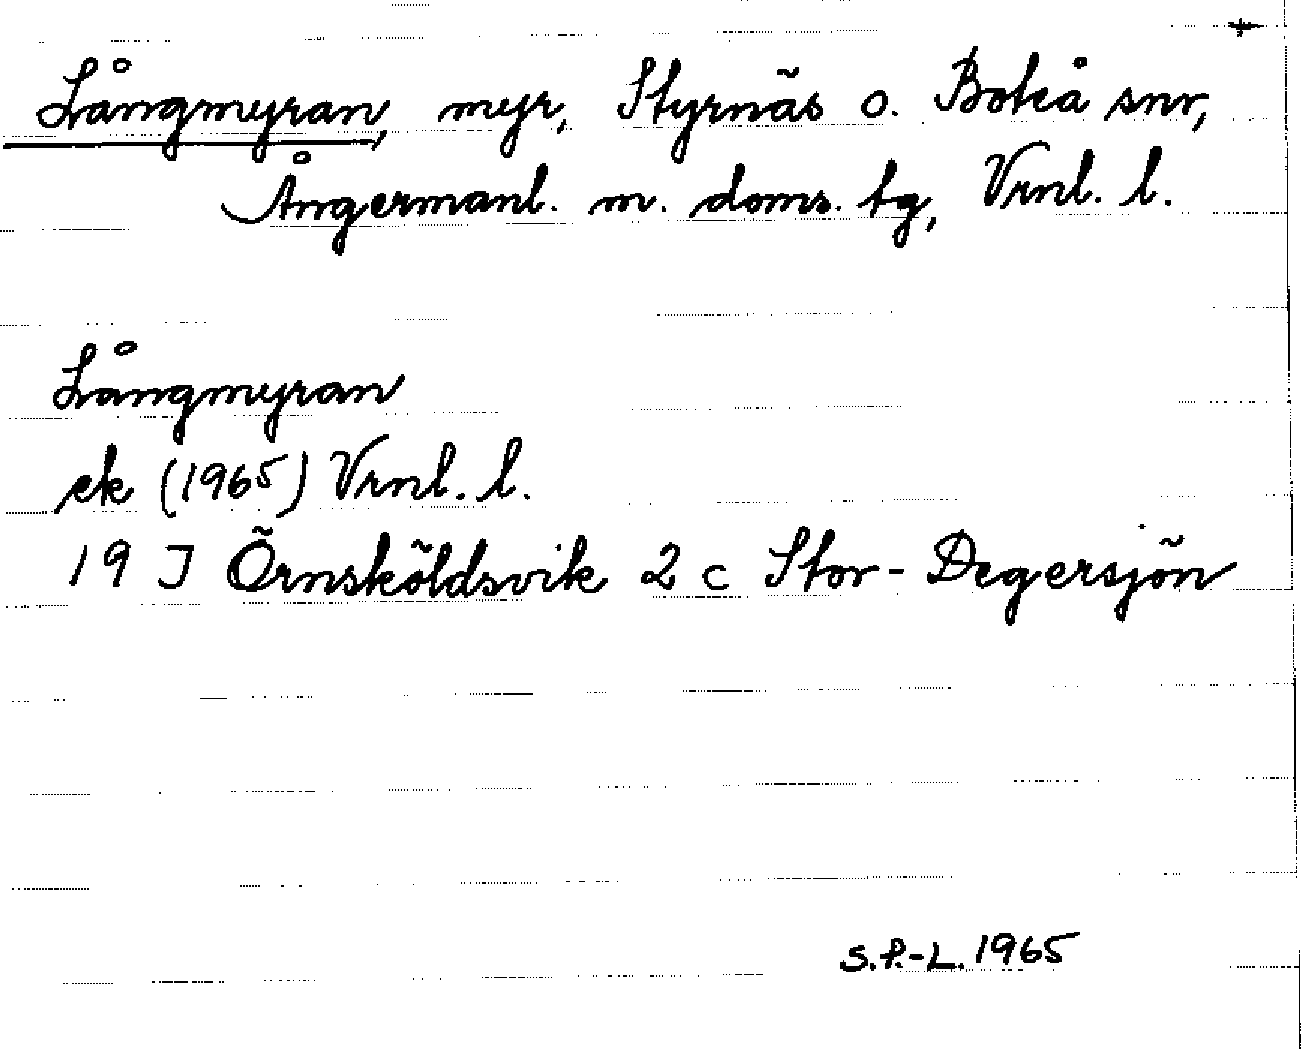 Långmyran, myr, Styrnäs o. Boteå snr,
Ångermanl. m. doms. tg, Vrnl. l.
Långmyran
ek (1965) Vrnl. l.
19 J Örnsköldsvik 2 c Stor-Degersjön
S.P.-L. 1965